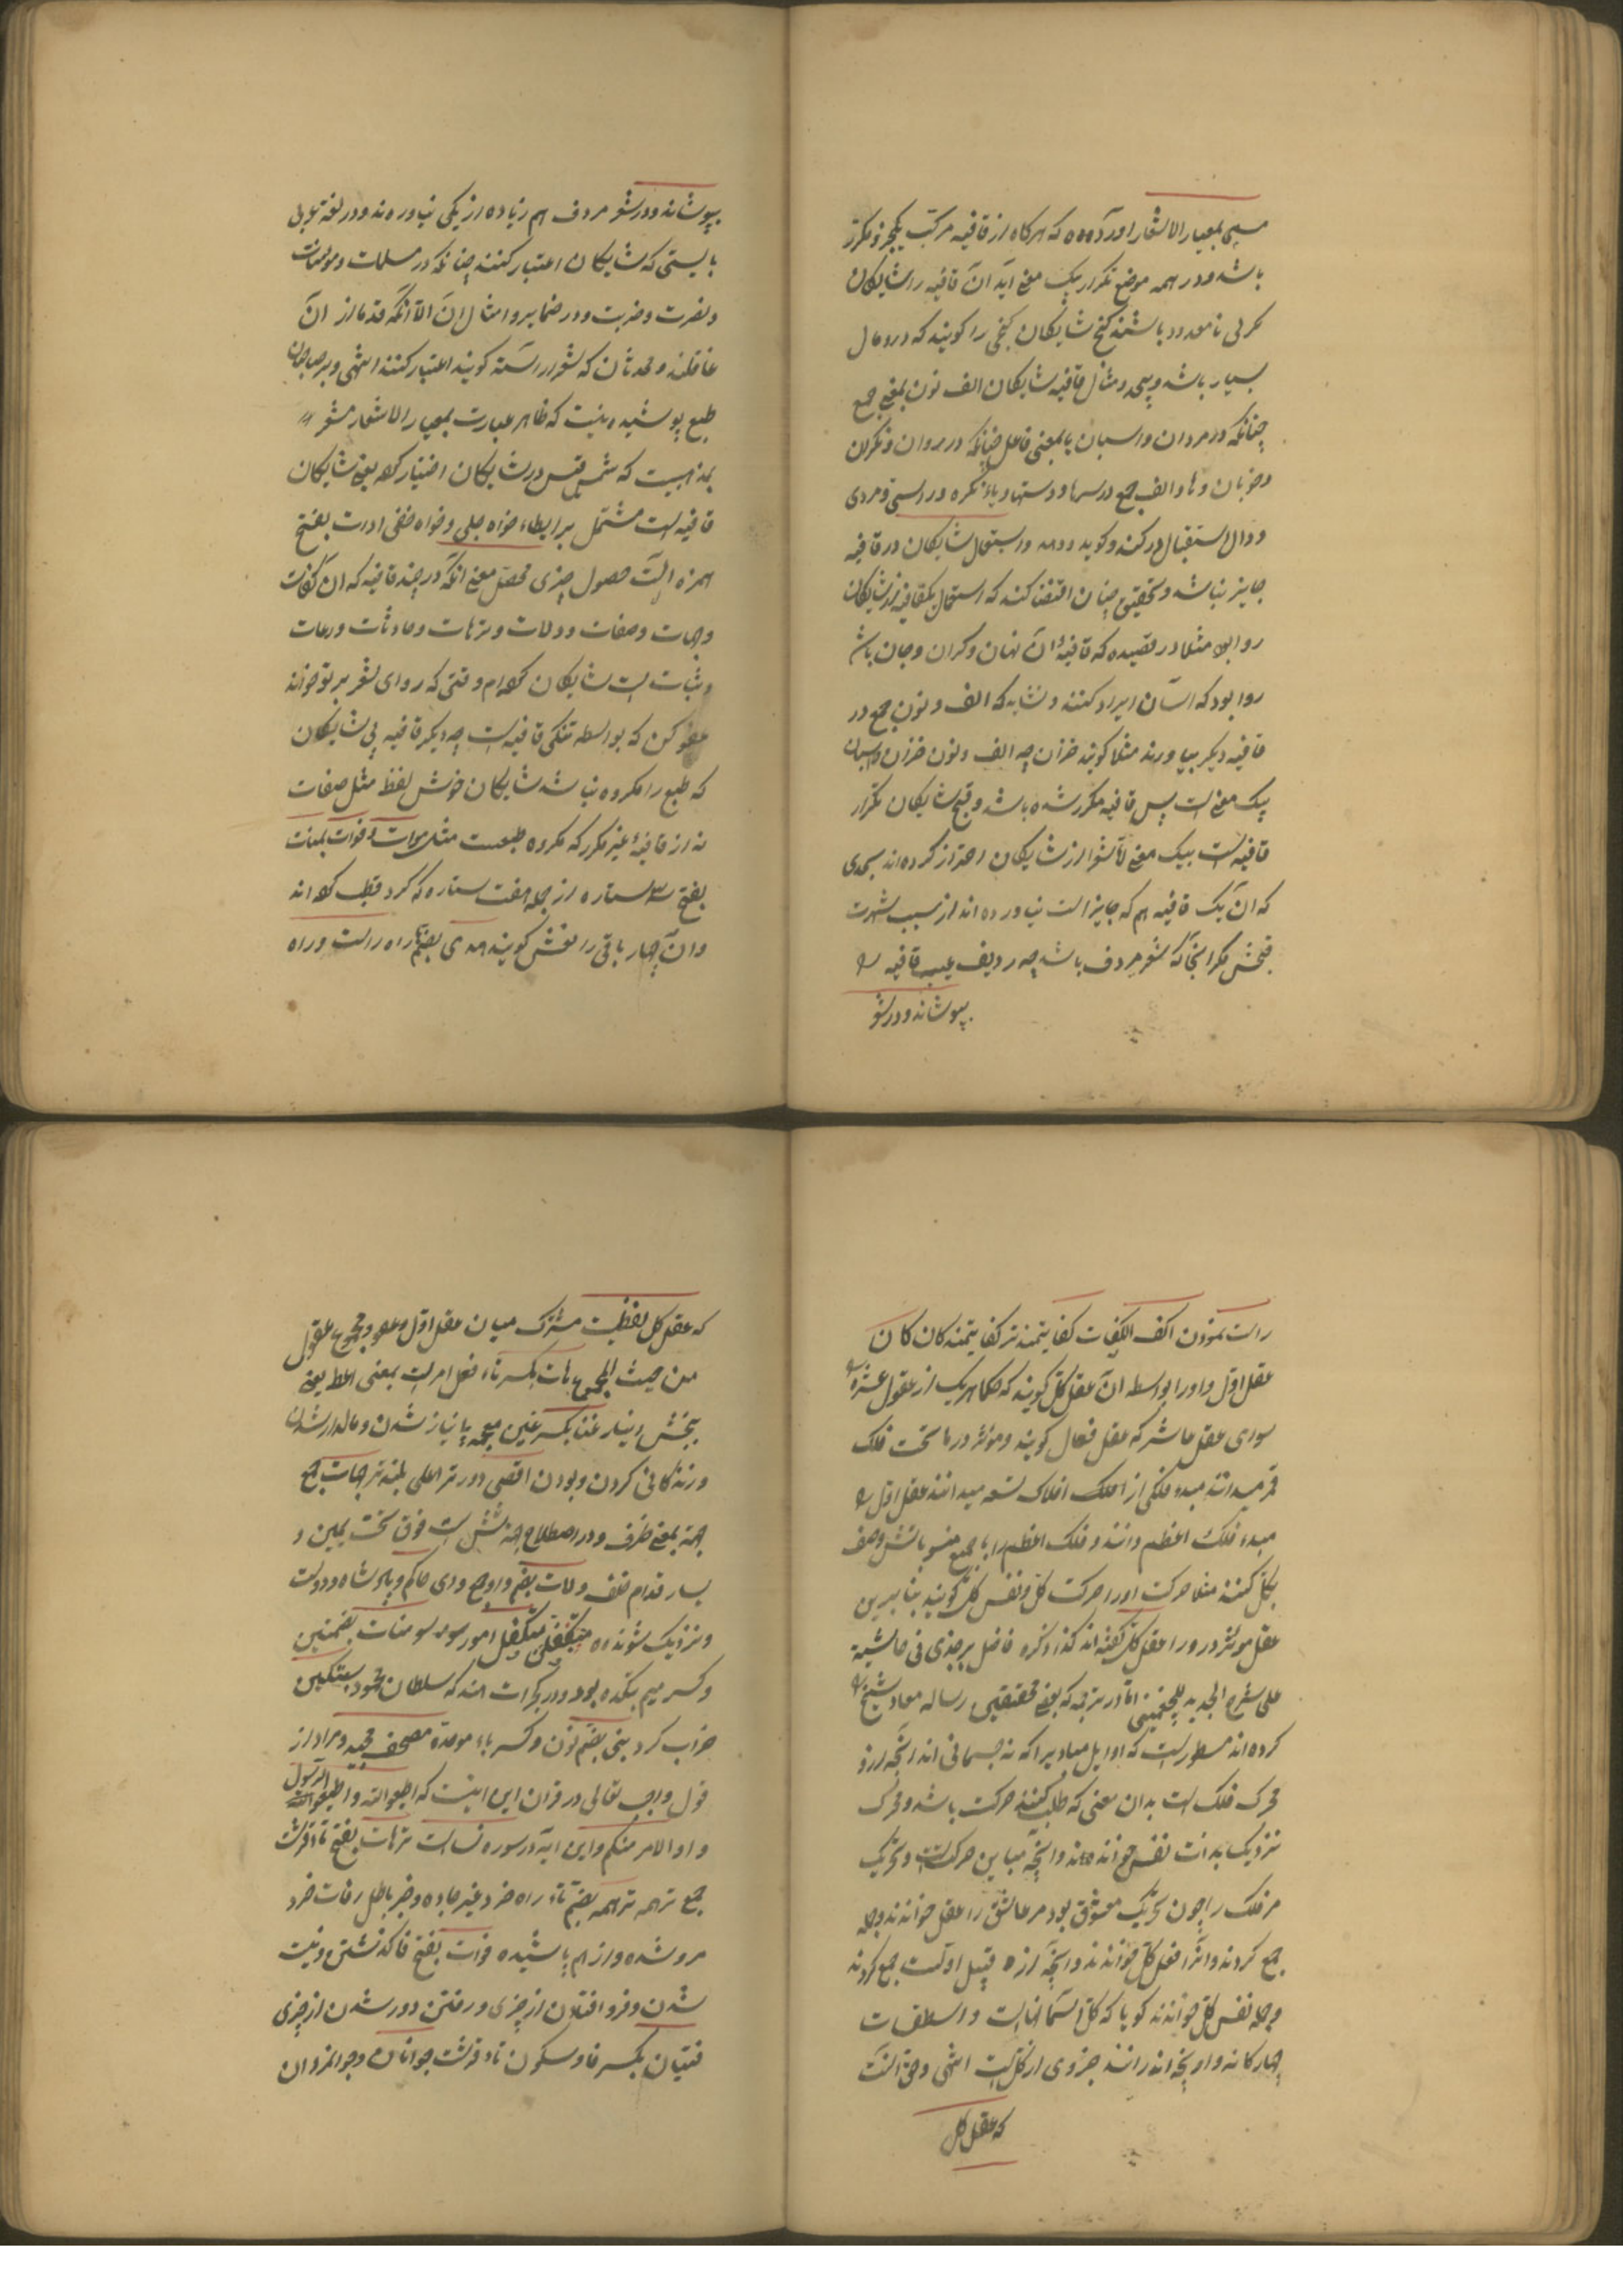 مسمی بمعیار الاشعار اورده که هرکاه از قافیه مرکب یکجزو مکرر
باشد و در همه موضع تکرار بیک معنی اید ان قافیه را شایکان
باشند کنج شایکان کنجی را کویند که درو مال
بسیار باشد و مثال قافیه شایکان الف نون بمعنی جمع
چنانکه در مردان و اسبان یا بمعنی فاعل چنانکه در روان و نکران
و خوبان و ها و الف جمع در سرها و دستها و یاء نکره در اسبی و مردی
و دال استقبال در کند و کوید و استعمال شایکان در قافیه
جایز نباشد و تحقیق چنان اقتضا کند که استعمال یکقافیه از شایکان
روا بود مثلا در قصیده که قافیهٔ ان نهان و کران و جان باشد
روا بود که اسان ایراد کنند و نشاید که الف و نون جمع در
قافیه دیکر بیاورند مثلا کویند خزان چه الف و نون خزان و اسبان
بیک معنی است پس قافیه مکرر شده باشد و قبح شایکان تکرار
قافیه است بیک معنی لا شعرا از شایکان احتراز کرده اند بحدی
که ان یک قافیه هم که جایز است نیاورده اند از سبب شهرت
قبحش مکر انجا که شعر مردف باشد چه ردیف عیب قافیه را
بپوشاند و در شعر
بپوشاند و در شعر مردف هم زیاده از یکی نیاورده‌اند و در لغة عربی
بایستی که شایکان اعتبار کنند چنانکه در مسلمات و مؤمنات
و نصرت و ضربت و در ضمایر و امثال ان الا انکه قدما از ان
غافلند و محدثان که شعر اراسته کویند اعتبار کنند انتهی و بر صاحبان
طبع پوشیده نیست که ظاهر عبارت بمعیار الاشعار مشعر
بمذهبیست که شمس قیس در شایکان اختیار کرده یعنی شایکان
قافیه است مشتمل بر ایطاء خواه جلی و خواه خفی ادات بفتح
همزه الت حصول چیزی محصل معنی انکه در چند قافیه که ان کفات
و جهات و صفات و ولات و ترهات و حادثات و رعات
و ثبات است شایکان کرده‌ام وقتی که راوی شعر بر تو خواند
عفو کن که بواسطه تنکی قافیه است چه دیکر قافیه بی شایکان
که طبع را مکروه نباشد شایکان خوش لفظ مثل صفات
به از قافیهٔ غیر مکرر که مکروه طبعست مثل موات و فوات بنات
بفتح سه ستاره از جمله هفت ستاره که کرد قطب اند
و ان چهار باقی را نعش کویند هدی بضم راه راست و راه
راست نمودن اکف الکفات کفایتمندتر کفایتمندکان کان
عقل اول و اورا بواسطه ان عقل کل کویند که حکما هریک از عقول عشره را
سوای عقل عاشر که عقل فعال کویند و موثر در ما تحت فلک
قمر میدانند مبدء فلکی از افلاک تسعه میدانند عقل اول را
مبدء فلک اعظم دانند و فلک اعظم را با جمیع منسوباتش وصف
بکل کنند مثلا حرکت اورا حرکت کل و نفس کل کویند بنابرین
عقل موثر در ورا عقل کل کفته‌اند کذا ذکره فاضل برجندی فی حاشیة
علی شرح الجدید للچغمینی اما در ترجمه که بعضی محققین رساله معاد شیخ را
کرده‌اند مسطور است که اوایل مبادیرا که نه جسمانی اند انچه ازو
محرک فلک است بدان معنی که طلب کننده حرکت باشد و محرک
نزدیک بدانست نفس خوانده‌اند و انچه مباین حرکتست و تحریک
مر فلک را چون تحریک معشوق بود مر عاشق را عقل خواندند و جمله
جمع کردند و انرا عقل کل خواندند و انچه از قبیل اولست جمع کردند
و جمله نفس کل خواندند کویا که کل اسمانهاست و اسطقسات
چهارکانه و انچه اندرانند جزوی از کل است انتهی و حق انست
که عقل کل
که عقل کل لفظیست مشترک میان عقل اول و مجموع عقول
من حیث المجموع هات بکسر تاء فعل امر است بمعنی اعط یعنی
ببخش و بیار غنا بکسر غین معجمه بی نیاز شدن و مالدار شدن
و زندکانی کردن و بودن اقصی دورتر اعلی بلندتر جهات جمع
جهة بمعنی طرف و در اصطلاح جهة شش است فوق تحت یمین و
یسار قدام خلف ولات بضم واو جمع والی حاکم و پادشاه و دوست
و نزدیک شونده متکفل امور سومنات بضمتین
و کسر میم بتکده بود در کجرات هند که سلطان محمود سبکتکین
خراب کرد نبی بضم نون و کسر باء موحدة مصحف مجید و مراد از
قول واجب تعالی در قران این ایتست که اطیعوا الله و اطیعوا الرسول
و اولا الامر منکم و این ایه در سوره نساست ترهات بضم تاء قرشت
جمع ترهه ترهه بضم تاء راه خرد غیر جاده و خبر باطل رفات خرد
مرد شده و از هم پاشیده فوات بفتح فا کذشتن و نیست
شدن و فرو افتادن از چیزی و رفتن و دور شدن از چیزی
فتیان بکسر فا و سکون تاء قرشت جوانان و جوانمردان